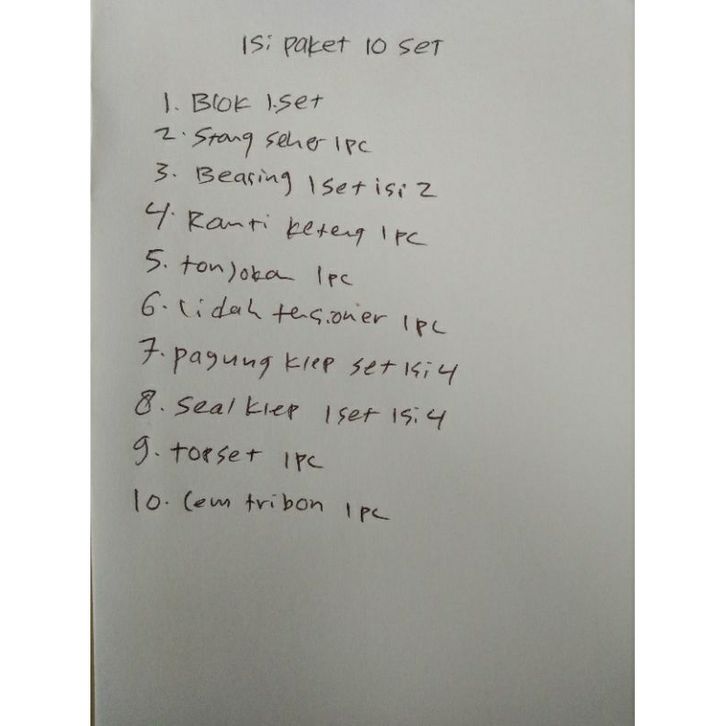 Isi paket 10 set
1. Blok 1.set
2. Stang seher 1pc
3. Bearing 1set isi 2
4. Ranti keteng 1pc
5. tonjokan 1pc
6. lidah tensioner 1pc
7. payung klep set isi 4
8. Seal klep 1set isi 4
9. topset 1pc
10. Lem tribon 1pc